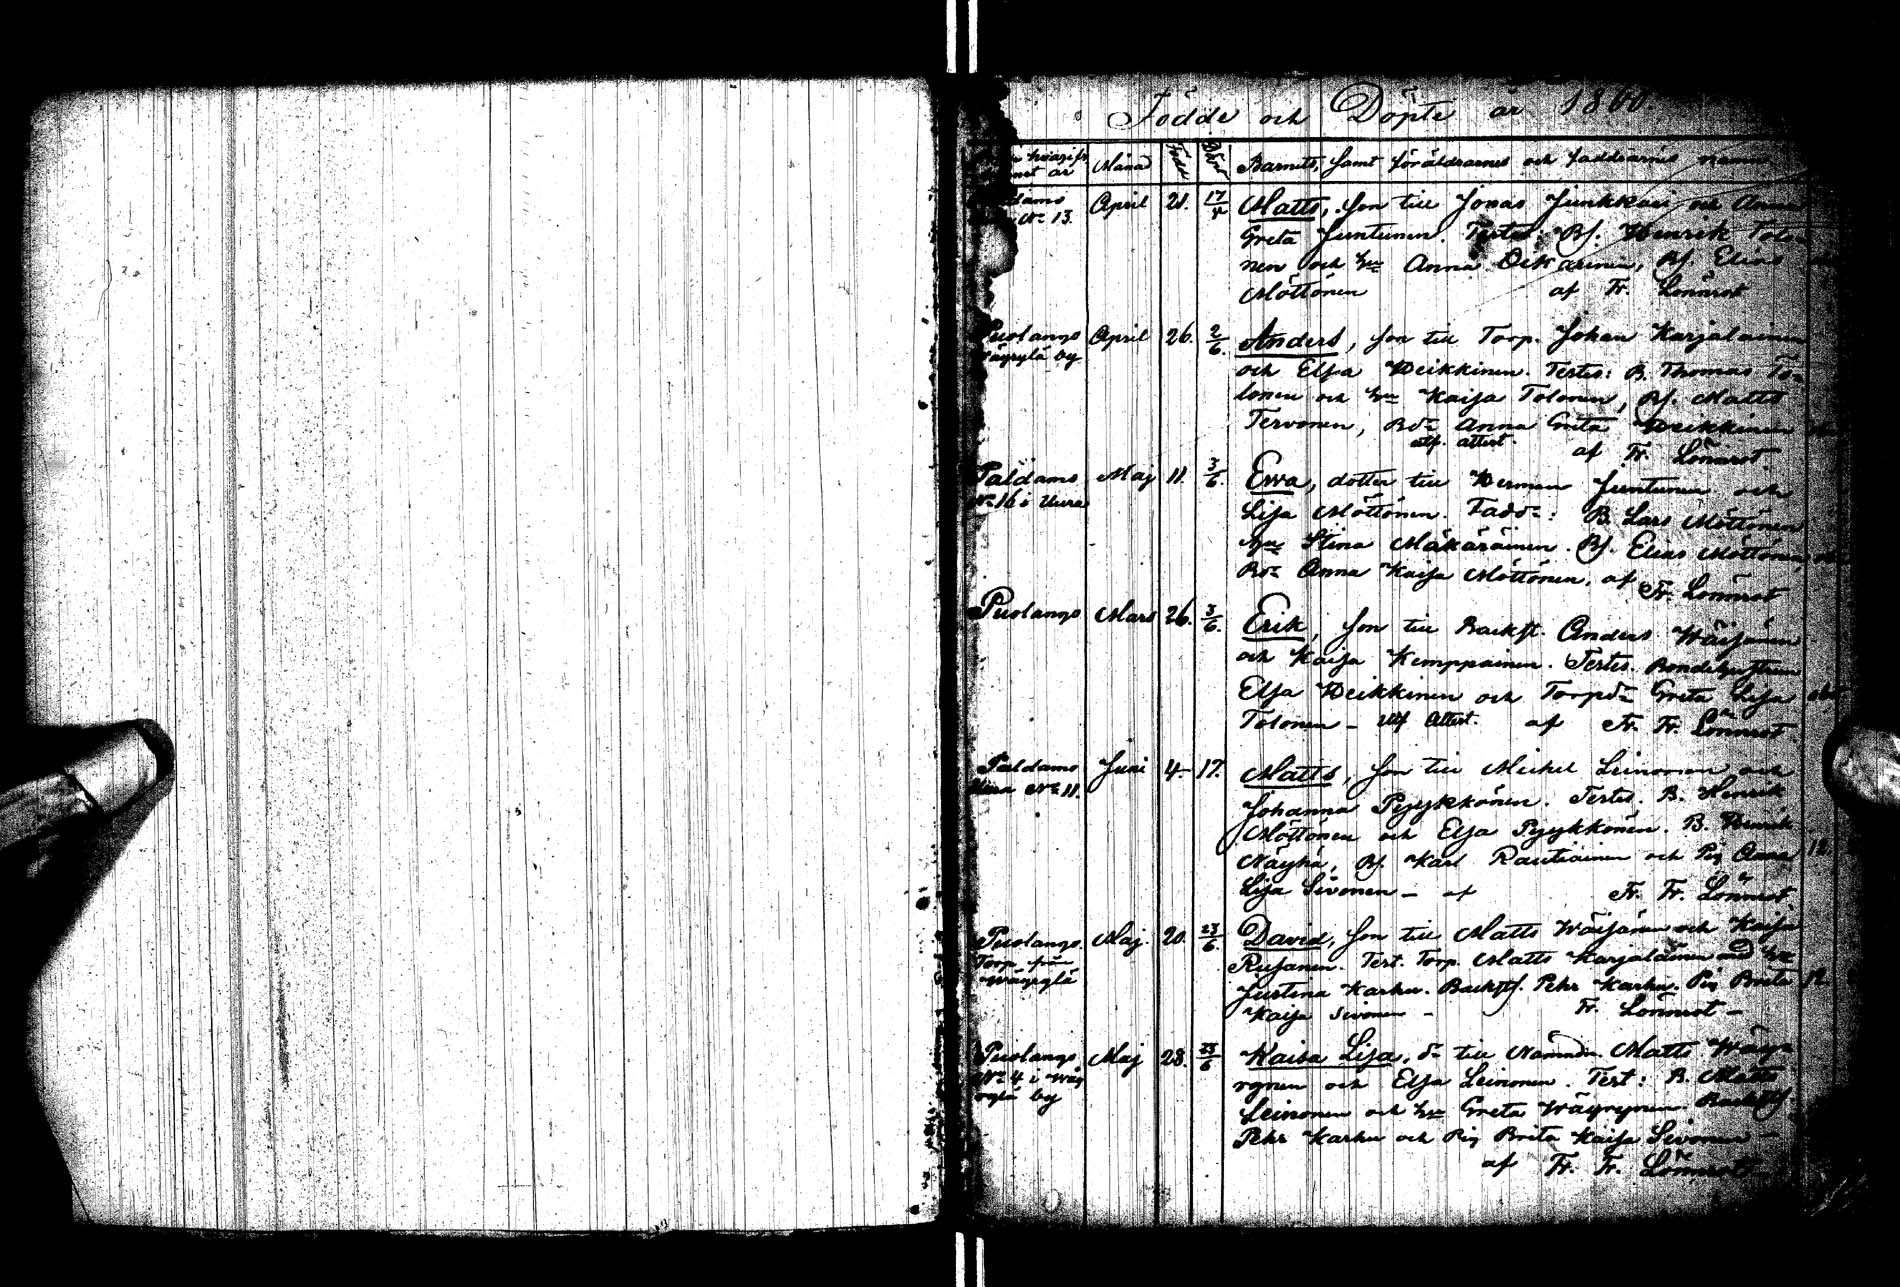 Födde och Döpte år 1860.
Månad Född Döpt Barnets, samt föräldrarnes och faddrarnes namn
No 13. April 21. 17/4 Matts, son till Jonas Junkkari och Anna
Greta Juntunen. Testes: Bs. Henrik Tolo-
nen och hu Anna Oikarinen, Bs. Elias
Möttönen af Fr. Lönnrot
Puolango April 26. 2/6. Anders, son till Torp. Johan Karjalainen
Wäyrylä by och Elsa Heikkinen. Testes: B. Thomas To-
lonen och hu Kaisa Tolonen, Bs. Matts
Tervonen, Bdr Anna Greta Heikkinen
utf. attest. af Fr. Lönnrot.
Paldamo Maj 11. 3/6. Ewa, dotter till Herman Juntunen och
No 16 i Uura Lisa Möttönen. Faddr: B. Lars Möttönen
hu Stina Mäkäräinen. Bs. Elias Möttönen,
Bdr Anna Kaisa Möttönen, af
Fr. Lönnrot
Puolango Mars 26. 3/6. Erik, son till Backst. Anders Wäisänen
och Kaisa Kemppainen. Testes. Bondehustrun
Elsa Heikkinen och Torpdr Greta Lisa
Tolonen – Utf Attest. af Fr. Fr. Lönnrot
Paldamo Juni 4– 17. Matts, son till Mickel Leinonen och
Uura No 11. Johanna Pyykkönen. Testes. B. Henrik
Möttönen och Elsa Pyykkönen. B. Henrik
Näyhä, Bs. Karl Rautiainen och Pig Anna 12.
Lisa Sivonen – af Fr. Fr. Lönnrot.
Puolango Maj. 20. 23/6. David, son till Matts Wäisänen och Kaisa
Torp från Piisanen. Test. Torp. Matts Karjalainen med hu
Wäyrylä Justina Karhu. Backsts. Pehr Karhu. Pig Brita 12
Kaisa Sivonen – Fr. Lönnrot –
Puolango Maj 28. 23/6 Kaisa Lisa, dr till Nämndm. Matts Wäy-
No 4 i Wäy- rynen och Elsa Leinonen. Test: B. Matts
rylä by Leinonen och hu Greta Wäyrynen. Backsts.
Pehr Karhu och Pig Brita Kaisa Sivonen –
af Fr. Fr. Lönnrot